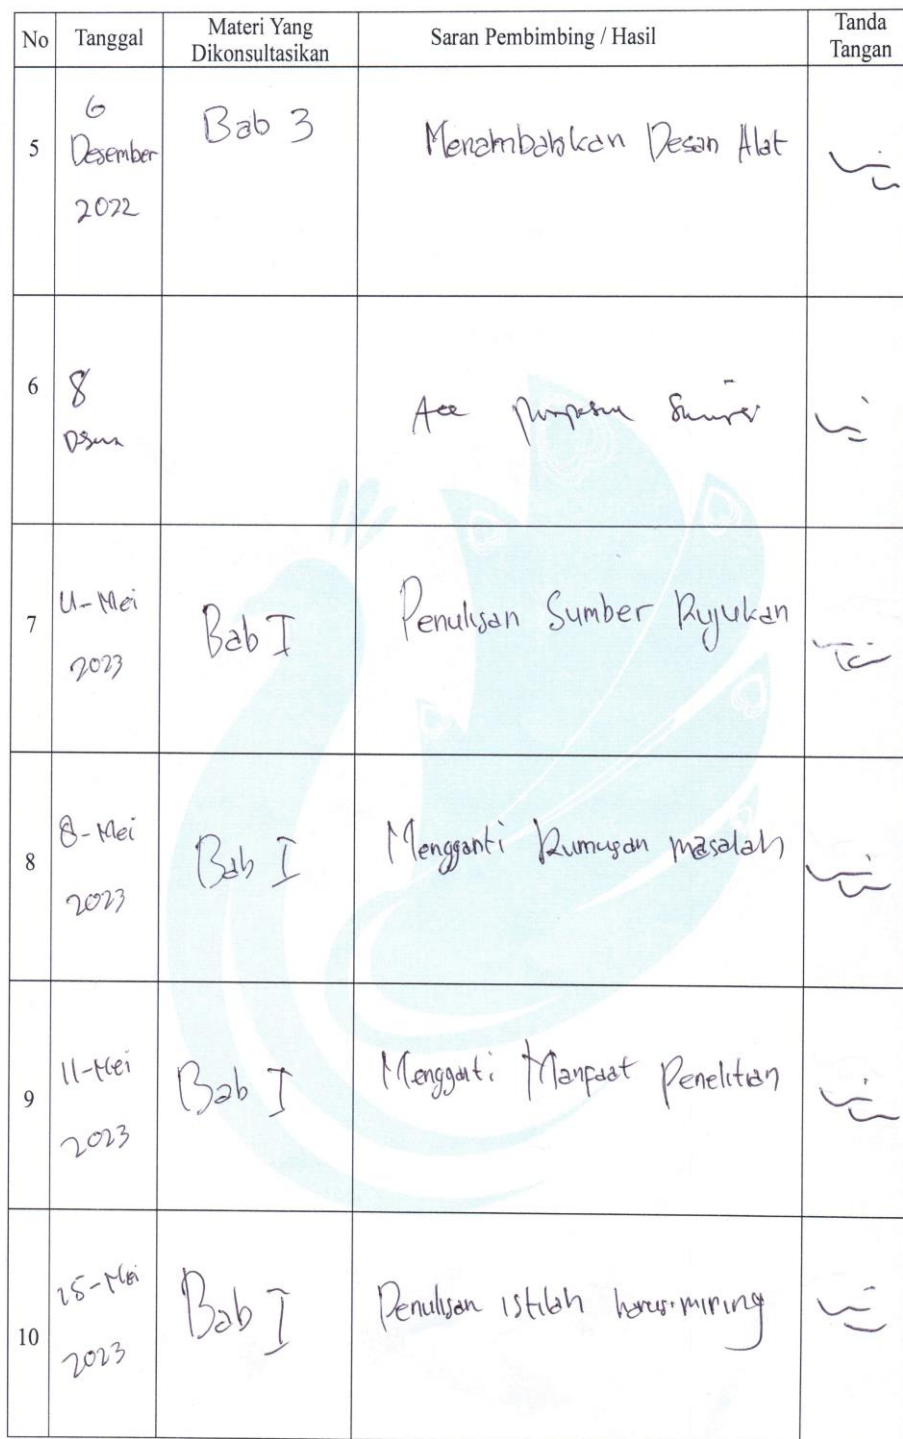 No Tanggal Materi Yang Dikonsultasikan Saran Pembimbing / Hasil Tanda Tangan
5 6 Desember 2022 Bab 3 Menambahkan Desan Alat
6 8 Acc
7 4-Mei 2023 Bab I Penulisan Sumber Rujukan
8 8-Mei 2023 Bab I Mengganti Rumusan masalah
9 11-Mei 2023 Bab I Mengganti Manfaat Penelitian
10 15-Mei 2023 Bab I Penulisan istilah harus miring